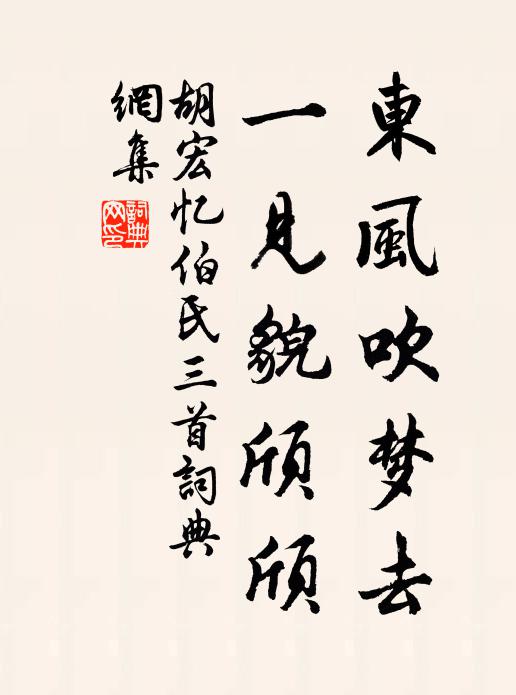 東風吹梦去
一見貌頎頎
胡宏忆伯氏三首詞典
網集
詞典网印